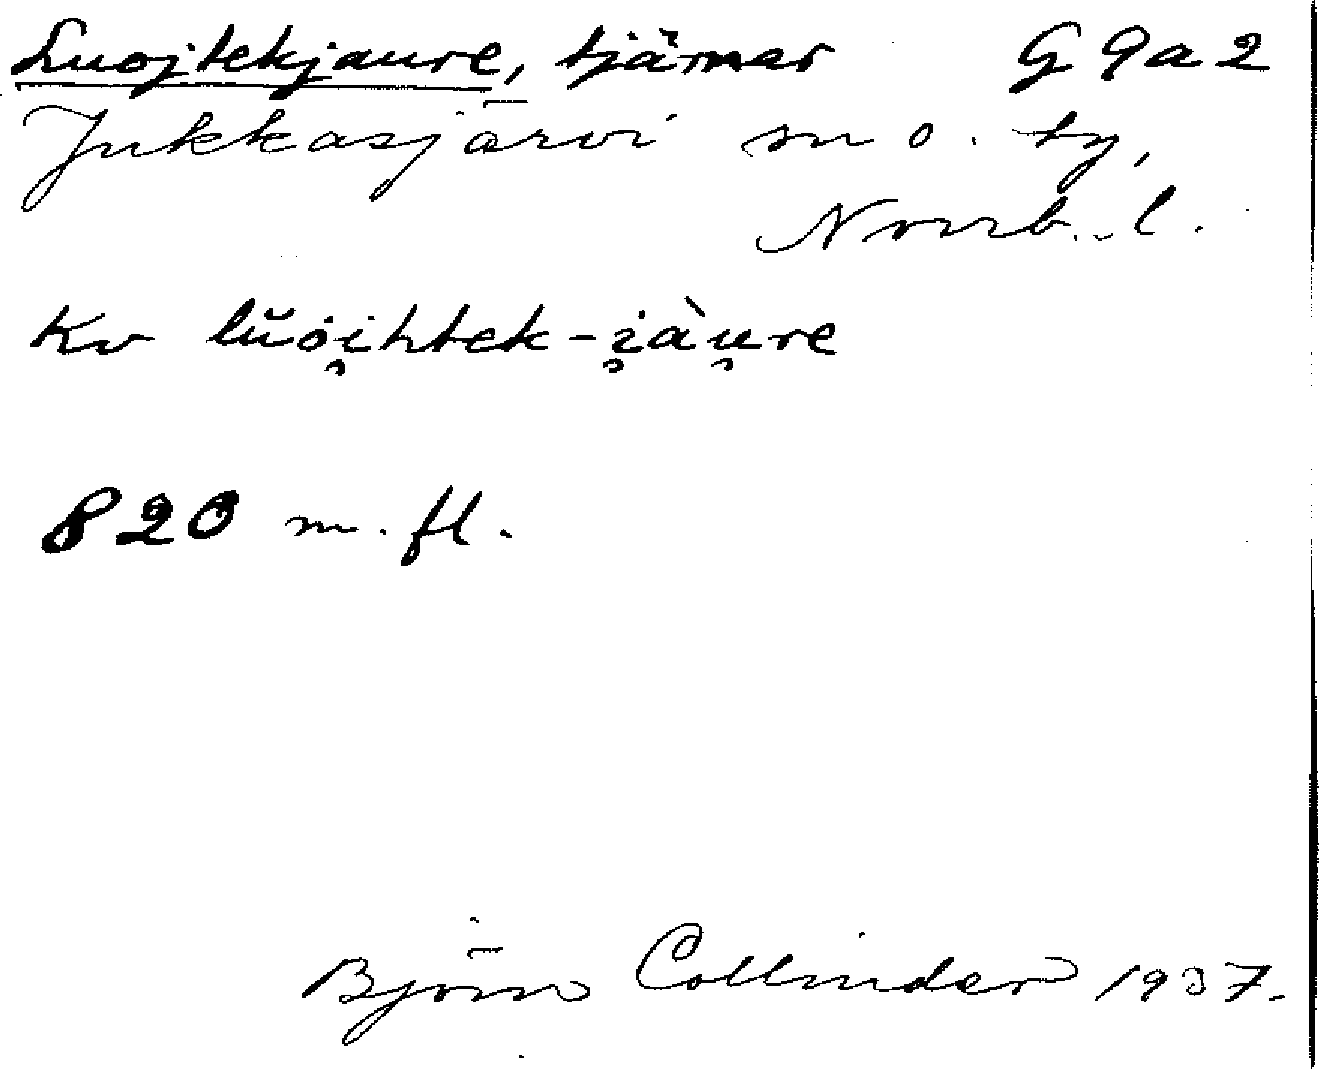 Luojtekjaure, tjärnar G 9 a 2
Jukkasjärvi sn o. ty,
Norrb. l.
Kv lŭȯi̯htek-i̯àu̯re
820 m. fl.
Björn Collinder 1937.